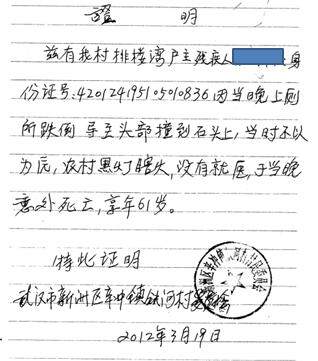 證 明
兹有我村排楼湾户主残疾人 身
份证号:420124195105010836因当晚上厕
所跌倒 导至头部撞到石头上,当时不以
为然,农村黑灯瞎火,没有就医,于当晚
意外死亡,享年61岁。
特此证明
武汉市新洲区辛冲镇 河村委会
2012年3月19日